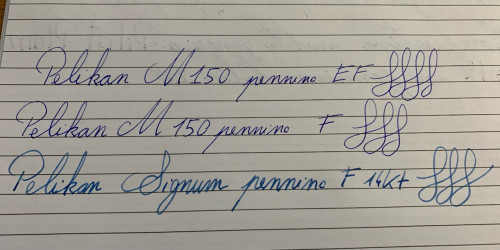 Pelikan M150 pennino EF
Pelikan M150 pennino F
Pelikan Signum pennino F 14kt